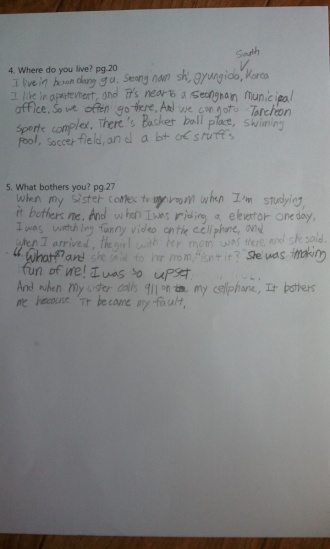 4. Where do you live? pg.20
South
I live in
seong nam shi, gyungido, Korea
I live in apartement, and it's near to a seongnam municipal
office. So we often go there. And we can go to Tancheon
Sports complex. There's Basket ball place, swimming
pool, soccer field, and a lot of stuffs
5. What bothers you? pg.27
When my sister comes to my room when I'm studying,
it bothers me. And when I was riding a elevator one day,
I was watching funny video on the cellphone, and
when I arrived, the girl with her mom was there and she said.
"What?" and she said to her mom. it?" She was making
fun of me! I was so upset.
And when my sister calls 911 on my cellphone, It bothers
me because It became my fault.